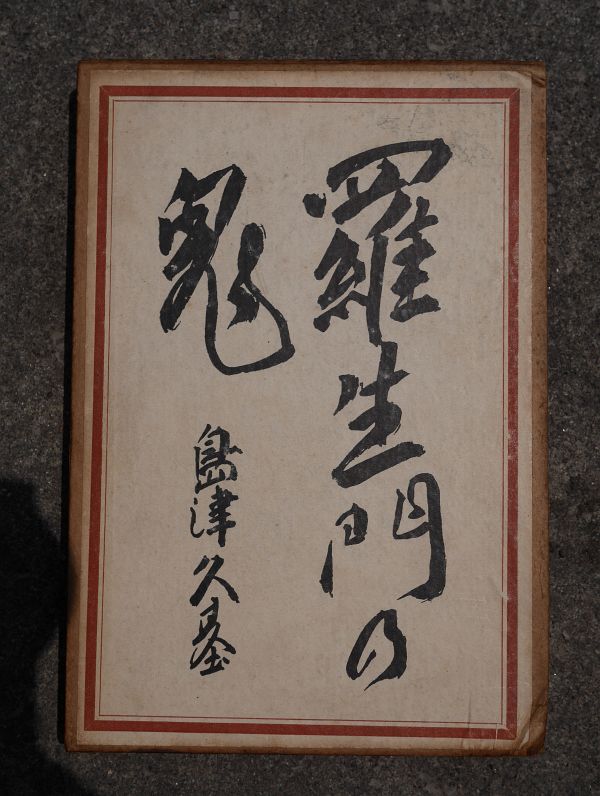 羅生門の
鬼
島津久基